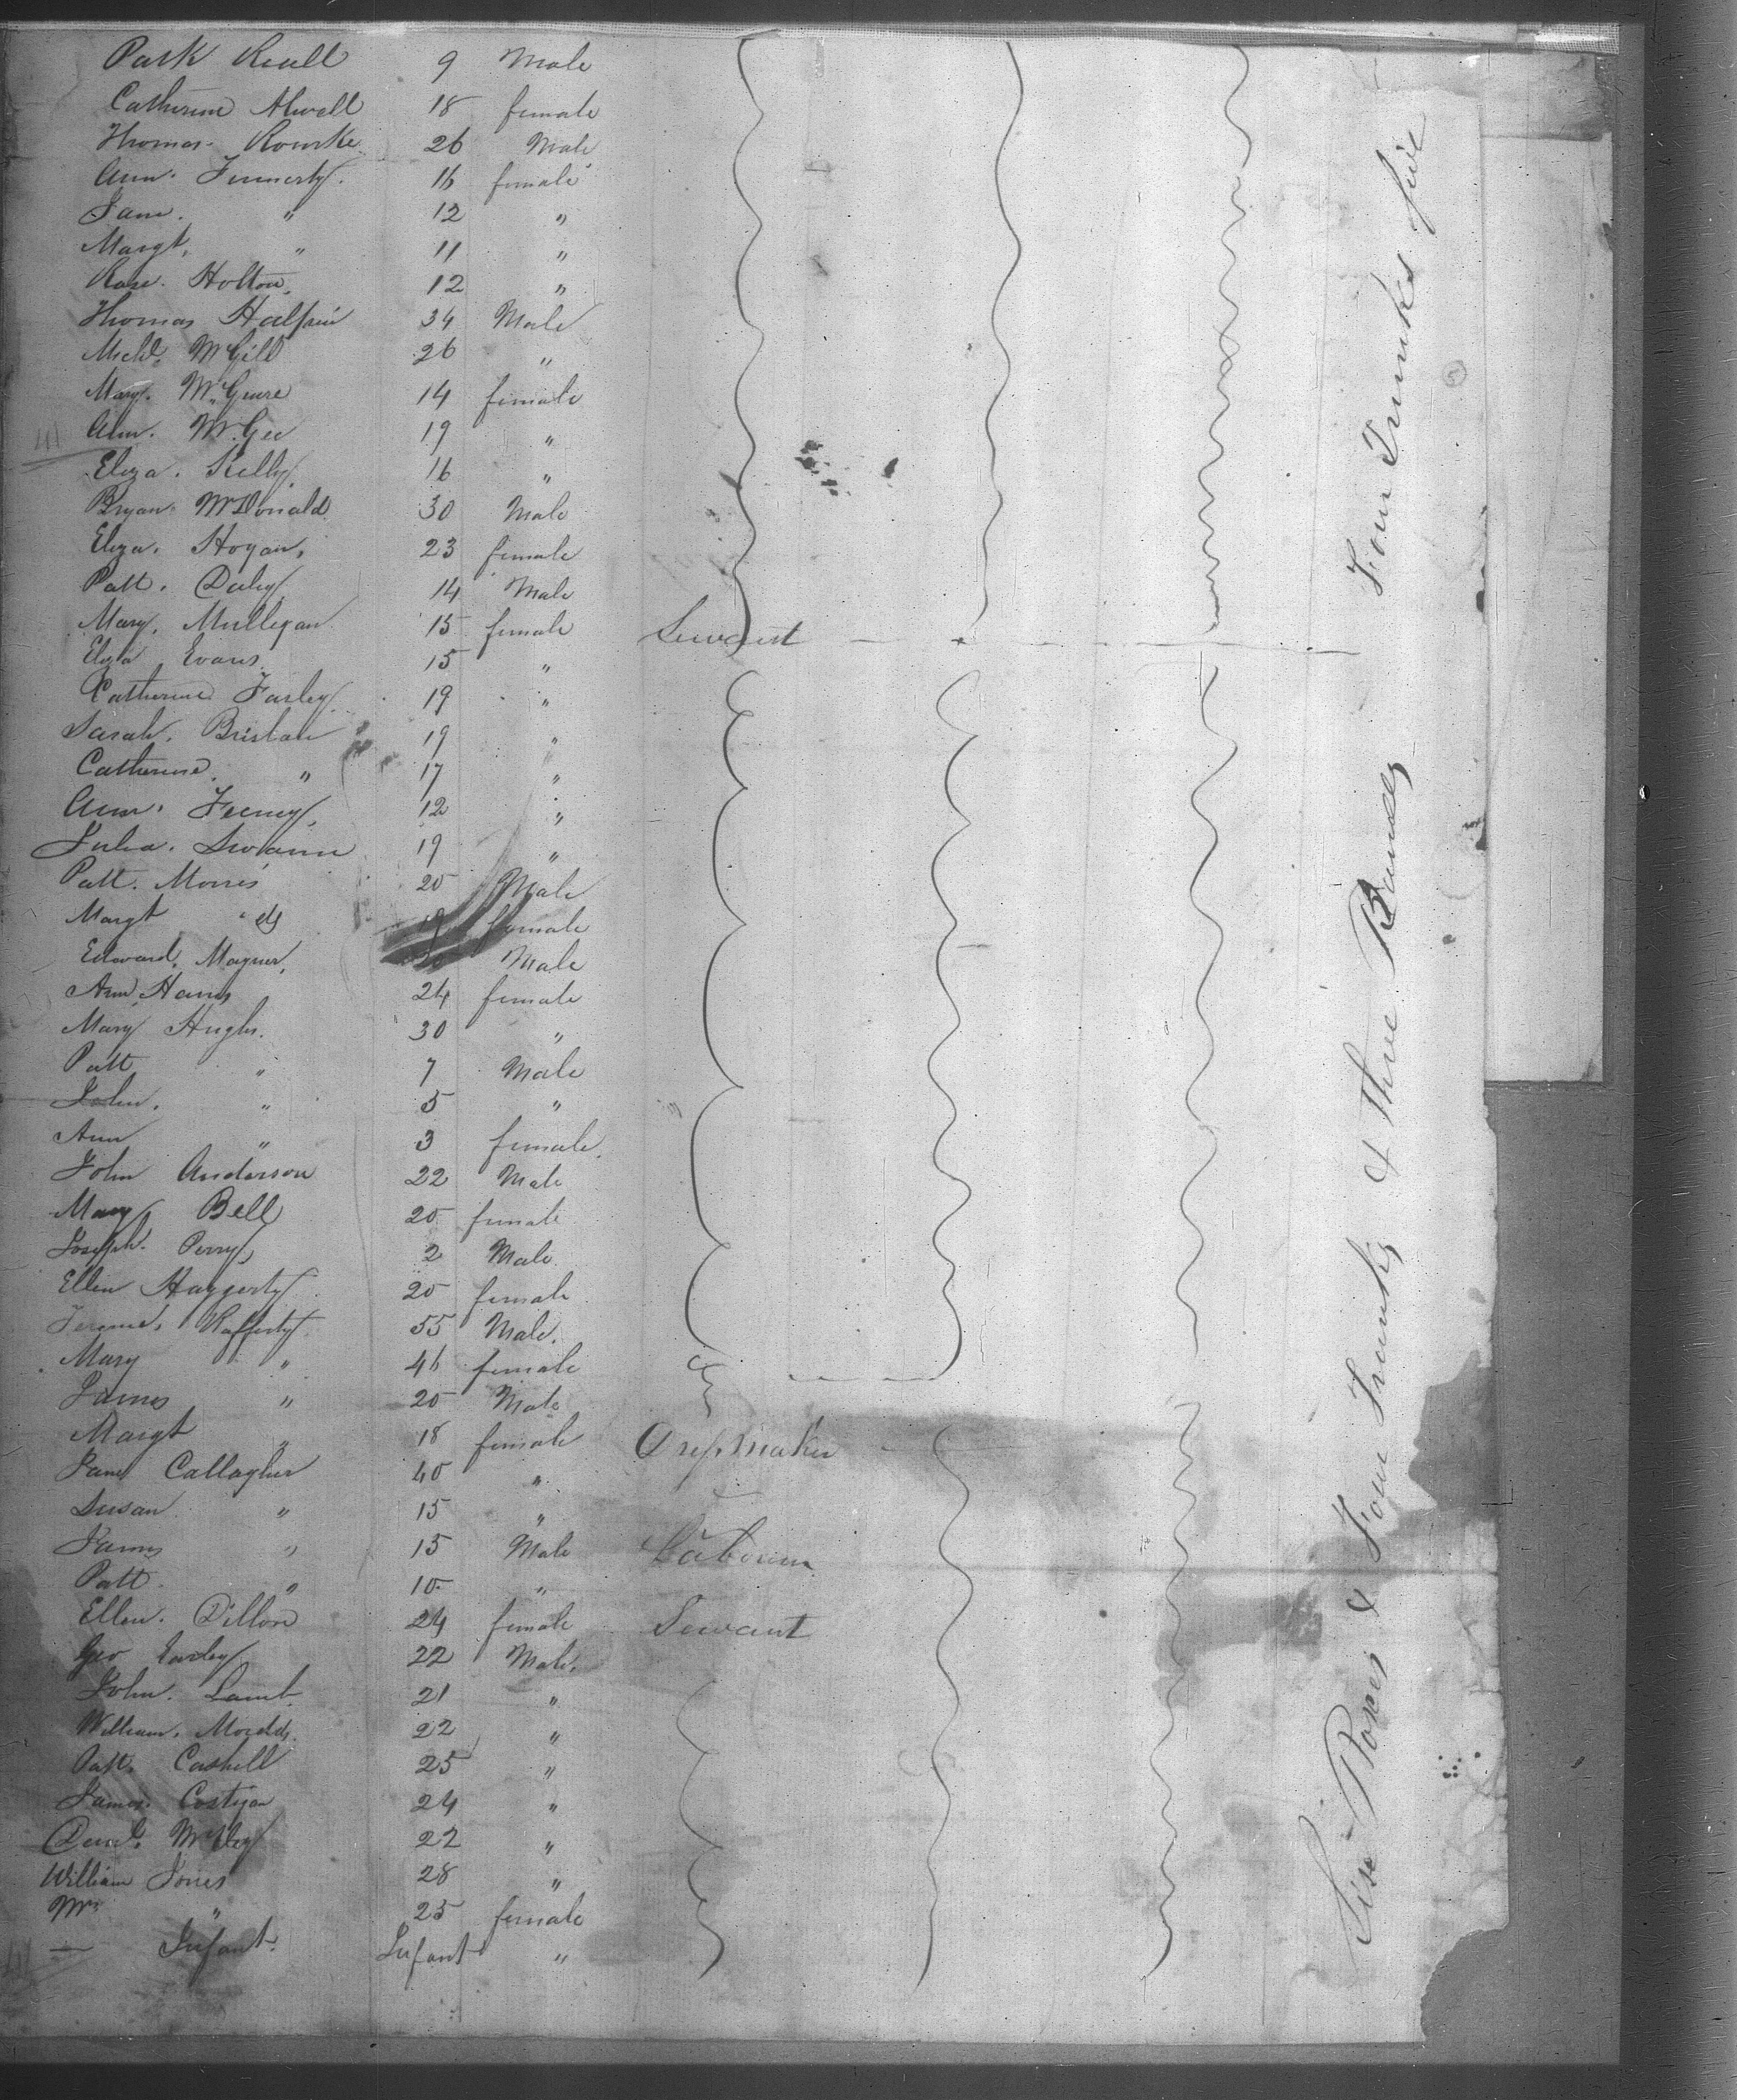 Patk Reall 9 Male
Catherine Atwell 18 female
Thomas Rourke 26 Male
Ann Finnerty 16 female
Jane " 12 "
Margt. " 11 "
Rose Holton 12 "
Thomas Halpin 34 Male
Michl. McGill 26 "
Mary McGuire 14 female
Ann McGee 19 "
Eliza Kelly 16 "
Bryan McDonald 30 Male
Eliza Hogan 23 female
Patt. Daly 14 Male
Mary Mulligan 15 female Servant
Eliza Evans 15 "
Catherine Farley 19 "
Sarah 19 "
Catherine " 17 "
Ann Feeney 12 "
Julia Swann 19 "
Patt. Morris 20 Male
Margt " female
Edward Magner Male
Ann Harris 24 female
Mary Hughs 30 "
Patt " 7 Male
John " 5 "
Ann " 3 female
John Anderson 22 Male
Mary Bell 20 female
Joseph Perry 2 Male
Ellen Haggerty 20 female
Rafferty 55 Male
Mary " 46 female
James " 20 Male
Margt " 18 female Dressmaker
Jane Callagher 40 "
Susan " 15 "
James " 15 Male Labourer
Patt " 10 "
Ellen Dillon 24 female Servant
Geo 22 Male
John Lamb 21 "
William 22 "
Patt. Cashell 25 "
James Costigan 24 "
22 "
William Jones 28 "
Mrs " 25 female
— Infant Infant "
Six Boxes & Four Trunks & Three Bundles Four Trunks five